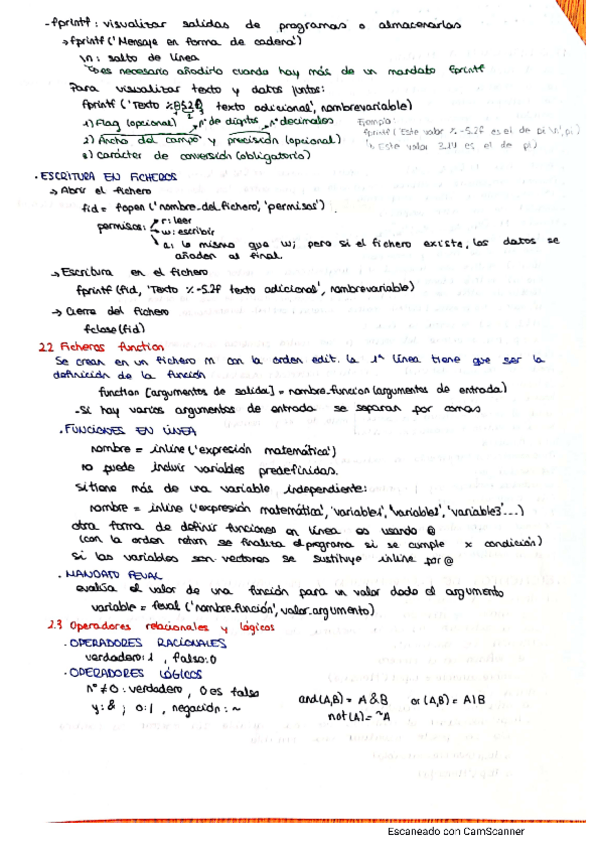 -fprintf: visualizar salidas de programas o almacenarlas
→fprintf('Mensaje en forma de cadena')
\n: salto de línea
↳es necesario añadirlo cuando hay más de un mandato fprintf
Para visualizar texto y datos juntos:
fprintf ('Texto %85.2f texto adicional', nombrevariable)
1) Flag (opcional) nº de dígitos nº decimales
2) Ancho del campo y precisión (opcional)
3) carácter de conversión (obligatorio)
Ejemplo:
fprintf('Este valor %-5.2f es el de pi \n', pi)
↳ Este valor 3.14 es el de pi)
· ESCRITURA EN FICHEROS
→ Abrir el fichero
fid = fopen ('nombre_del_fichero', 'permisos')
permisos: r: leer
w: escribir
a: lo mismo que w; pero si el fichero existe, los datos se
añaden al final.
→ Escritura en el fichero
fprintf (fid, 'Texto %-5.2f texto adicional', nombrevariable)
→ Cierre del fichero
fclose (fid)
2.2 Ficheros function
Se crean en un fichero M con la orden edit. la 1ª línea tiene que ser la
definición de la función
function [argumentos de salida] = nombre_funcion (argumentos de entrada)
-Si hay varios argumentos de entrada se separan por comas
· FUNCIONES EN LÍNEA
nombre = inline ('expresión matemática')
no puede incluir variables predefinidas.
si tiene más de una variable independiente:
nombre = inline ('expresión matemática', 'variable1', 'variable2', 'variable3'...)
otra forma de definir funciones en línea es usando @
(con la orden return se finaliza el programa si se cumple x condición)
Si las variables son vectores se sustituye inline por @
· MANDATO FEVAL
evalúa el valor de una función para un valor dado al argumento
variable = feval ('nombre_función', valor_argumento)
2.3 Operadores relacionales y lógicos
· OPERADORES RACIONALES
verdadero: 1 , falso: 0
· OPERADORES LÓGICOS
nº ≠ 0 : verdadero , 0 es falso
y: & ; o: | , negación: ~
and(A,B) = A & B or (A,B) = A | B
not (A) = ~A
Escaneado con CamScanner